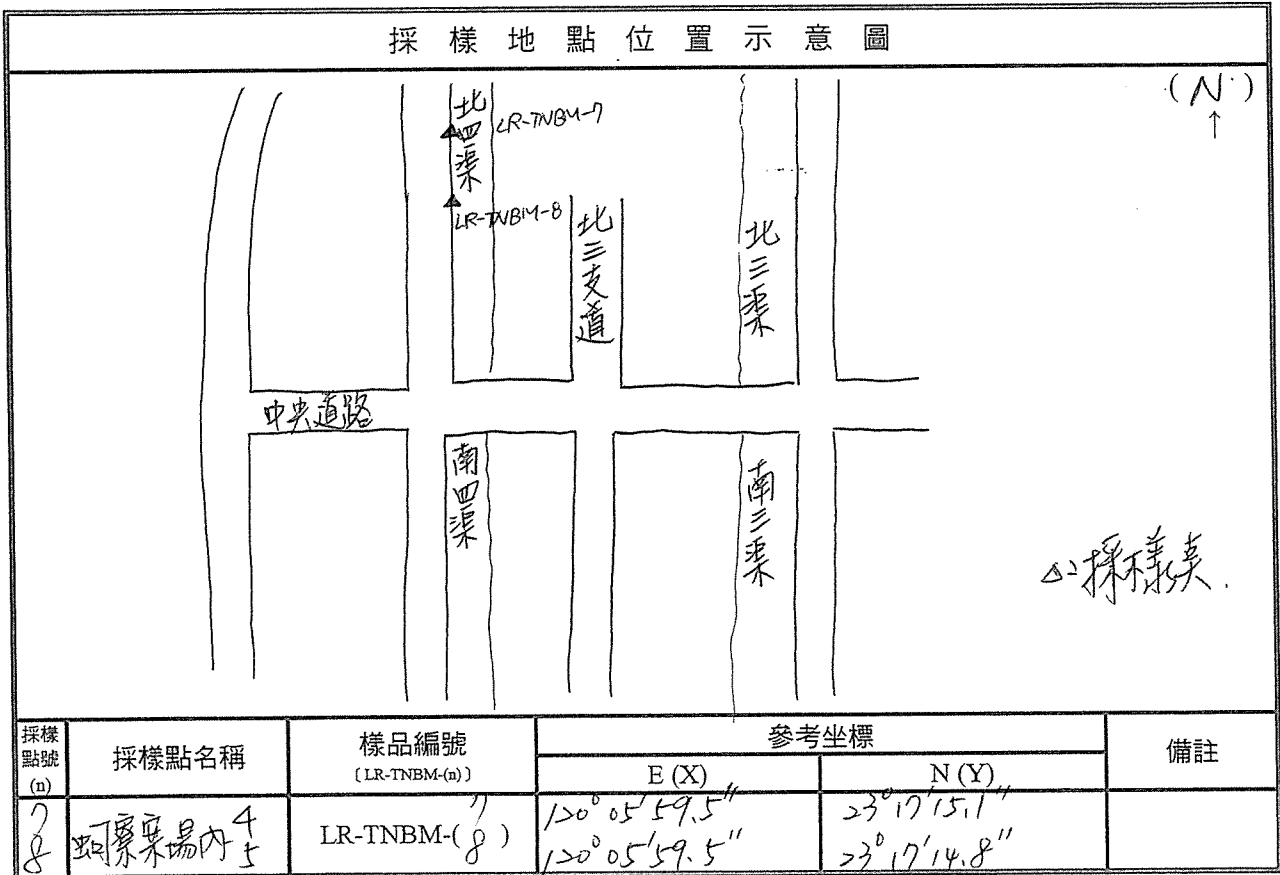 採樣地點位置示意圖
(N)
↑
北四渠
LR-TNBM-7
LR-TNBM-8
北三支道
北三渠
中央道路
南四渠
南三渠
△:採樣點.
採樣點號(n)
採樣點名稱
樣品編號
〔LR-TNBM-(n)〕
參考坐標
E (X)
N (Y)
備註
7
8
蚵寮寮場內 4
5
LR-TNBM-(7
8)
120° 05' 59.5"
120° 05' 59.5"
23° 17' 15.1"
23° 17' 14.8"